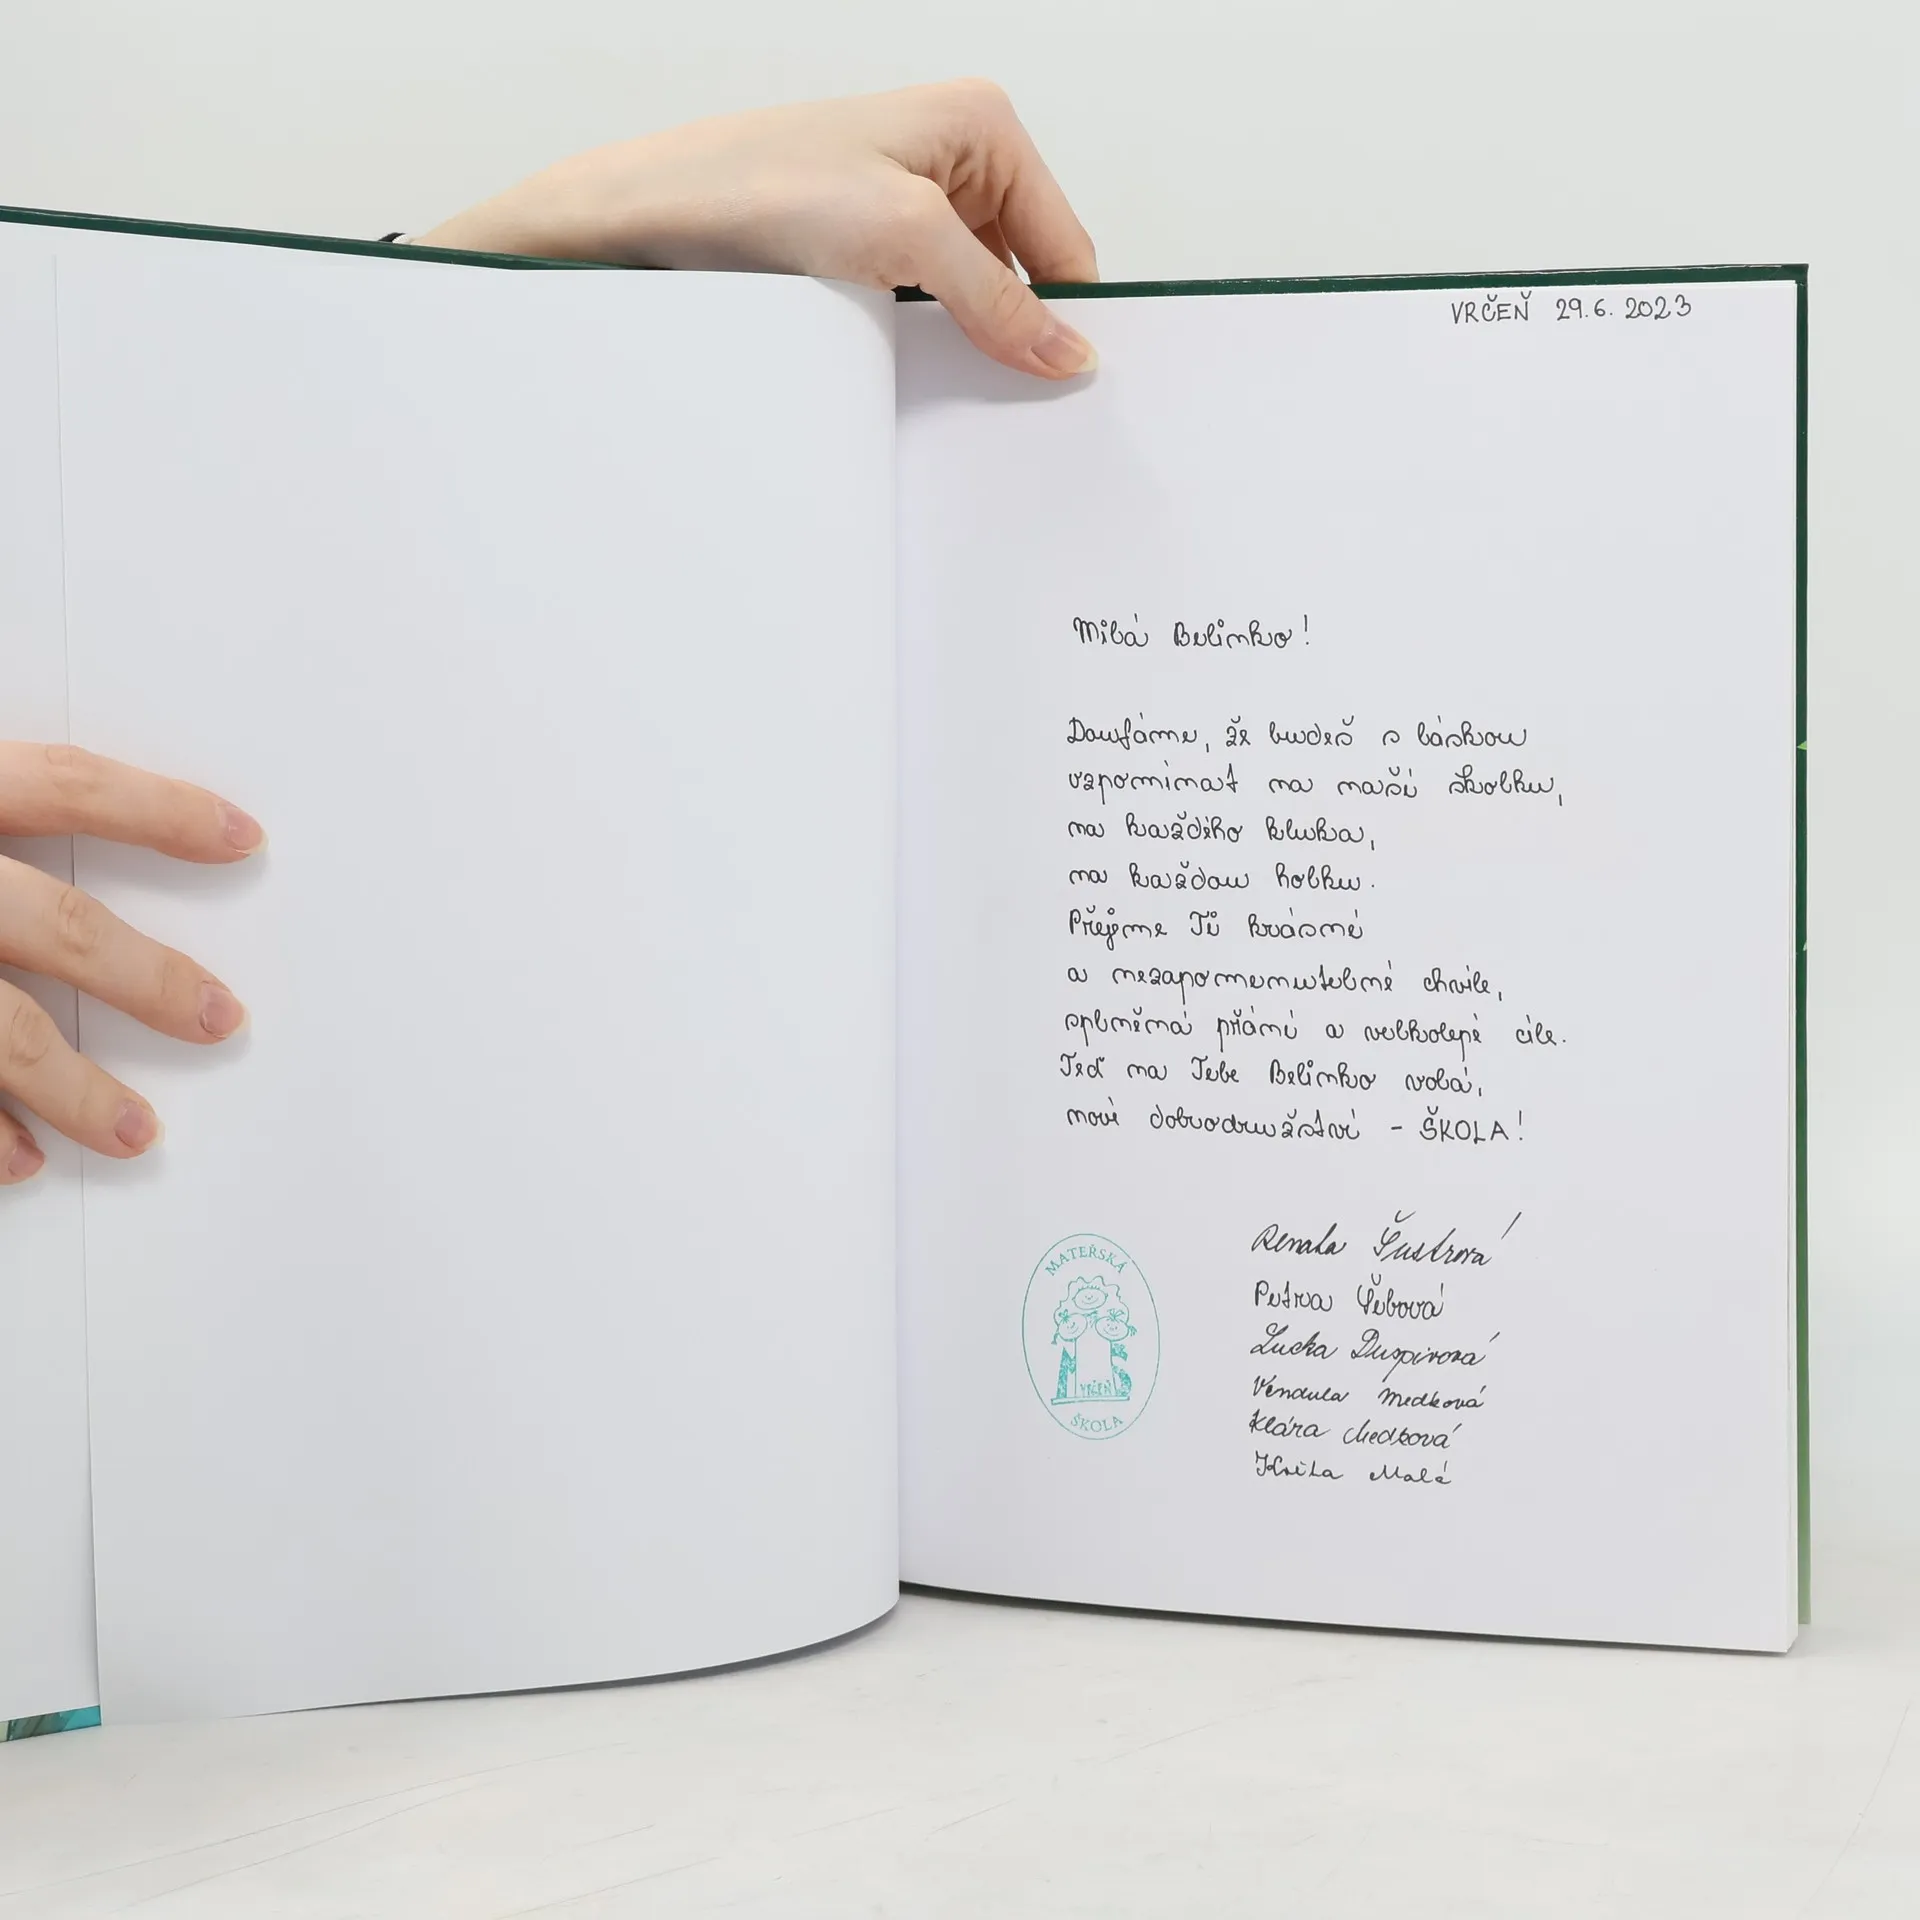 VRČEŇ 29.6.2023
Milá Belinko!
Doufáme, že budeš s láskou
vzpomínat na naší školku,
na každého kluka,
na každou holku.
Přejeme Ti krásné
a nezapomenutelné chvíle,
splněná přání a velkolepé cíle.
Teď na Tebe Belinko volá,
nové dobrodružství - ŠKOLA!
Renata Šustrová
Petra
Lucka Duspivová
Vendula Medková
Klára Medková
Květa Malá
MATEŘSKÁ
MŠ
VRČEŇ
ŠKOLA